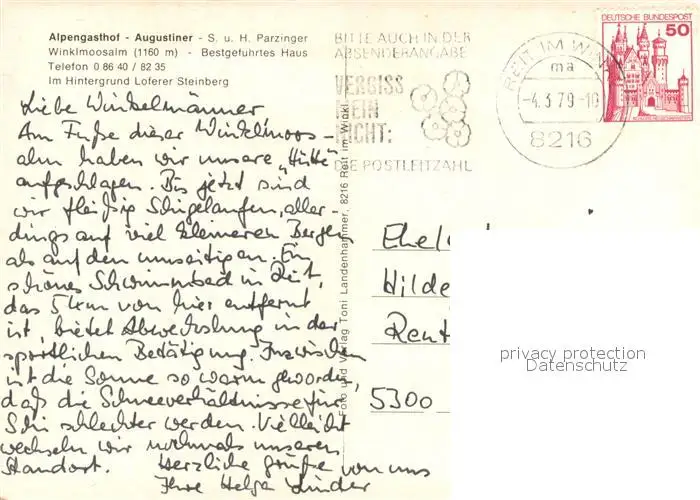 Alpengasthof - Augustiner - S. u. H. Parzinger
Winklmoosalm (1160 m) - Bestgeführtes Haus
Telefon 0 86 40 / 82 35
Im Hintergrund Loferer Steinberg
Liebe Winkelmänner
Am Fuße dieser Winkelmoos-
alm haben wir unsere "Hütte"
aufgeschlagen. Bis jetzt sind
wir fleißig Skigelaufen, aller-
dings auf viel kleineren Bergen
als auf den umseitigen. Ein
schönes Schwimmbad in Reit,
das 5 km von hier entfernt
ist, bietet Abwechslung in der
sportlichen Betätigung. Inzwischen
ist die Sonne so warm geworden,
daß die Schneeverhältnisse für
Ski schlechter werden. Vielleicht
wechseln wir nochmals unseren
Standort. Herzliche Grüße von uns
Ihre Helga
Foto und Verlag Toni Landenhammer, 8216 Reit im Winkl
BITTE AUCH IN DER
ABSENDERANGABE
VERGISS
MEIN
NICHT:
DIE POSTLEITZAHL
REIT IM WINKL
ma
-4.3.79-10
8216
DEUTSCHE BUNDESPOST
50
Ehel
Hilde
Rent
5300
privacy protection
Datenschutz